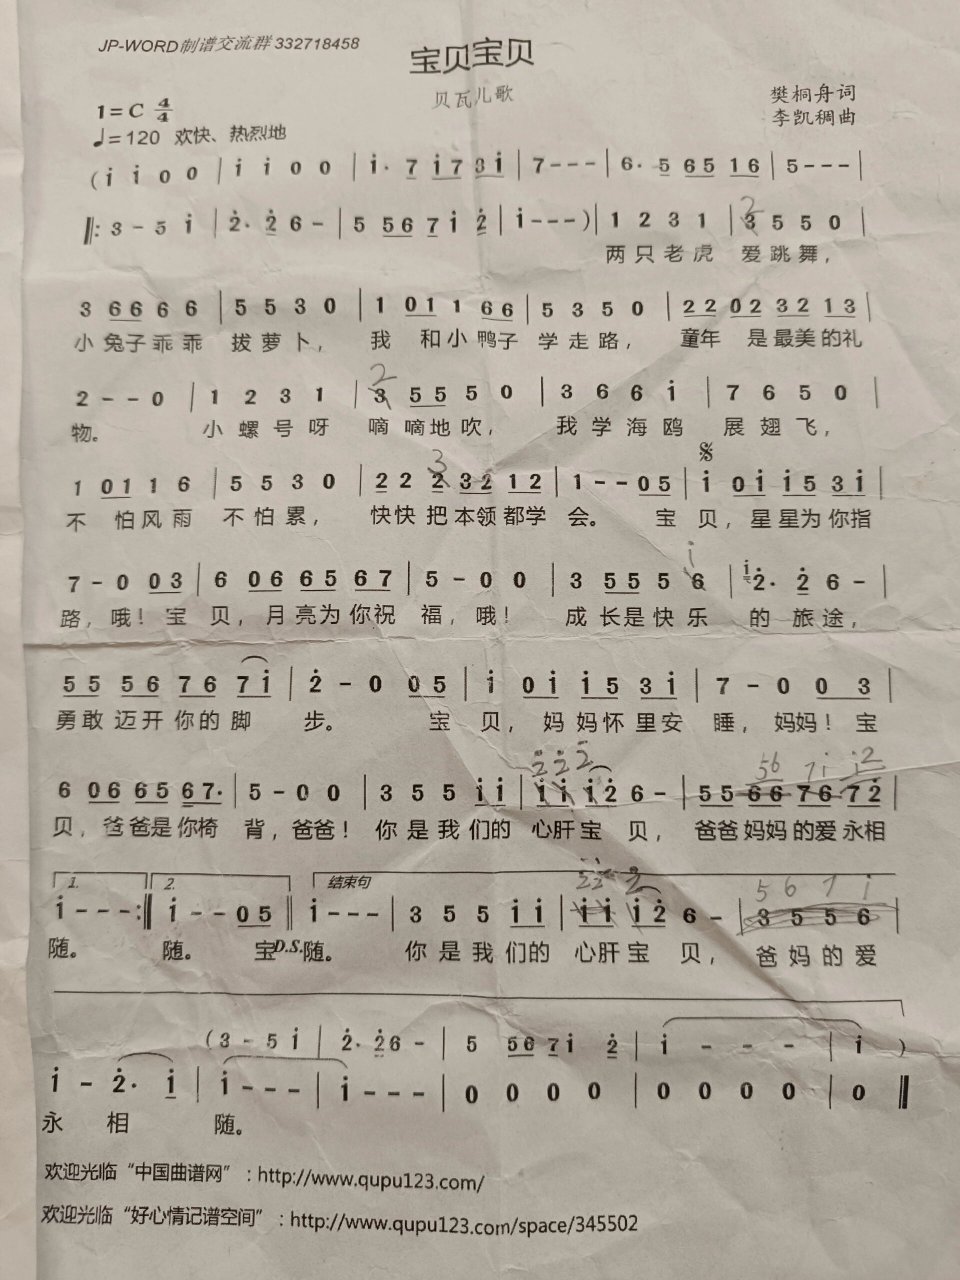 JP-WORD制谱交流群 332718458
宝贝宝贝
贝瓦儿歌
1=C 4/4
樊桐舟词
♩=120 欢快、热烈地
李凯稠曲
(i i 0 0 | i i 0 0 | i· 7 i 7 3 i | 7 - - - | 6· 5 6 5 1 6 | 5 - - - |
‖: 3 - 5 i | 2· 2 6 - | 5 5 6 7 i 2 | i - - - ) | 1 2 3 1 | 3 5 5 0 |
2
两只老虎 爱跳舞，
3 6 6 6 6 | 5 5 3 0 | 1 0 1 1 6 6 | 5 3 5 0 | 2 2 0 2 3 2 1 3 |
小兔子乖乖 拔萝卜， 我 和小鸭子 学走路， 童年 是最美的礼
2
2 - - 0 | 1 2 3 1 | 3 5 5 5 0 | 3 6 6 i | 7 6 5 0 |
物。 小螺号呀 嘀嘀地吹， 我学海鸥 展翅飞，
3
1 0 1 1 6 | 5 5 3 0 | 2 2 2 3 2 1 2 | 1 - - 0 5 | i 0 i i 5 3 i |
不 怕风雨 不怕累， 快快把本领都学 会。 宝 贝，星星为你指
i
7 - 0 0 3 | 6 0 6 6 5 6 7 | 5 - 0 0 | 3 5 5 5 6 | i 2· 2 6 - |
路，哦！宝 贝，月亮为你祝 福，哦！ 成长是快乐 的旅途，
5 5 5 6 7 6 7 i | 2 - 0 0 5 | i 0 i i 5 3 i | 7 - 0 0 3 |
勇敢迈开你的脚 步。 宝 贝，妈妈怀里安 睡，妈妈！宝
2 2 2 5 6 7 i i 2
6 0 6 6 5 6 7· | 5 - 0 0 | 3 5 5 i i | i i i 2 6 - | 5 5 6 6 7 6 7 2 |
贝，爸爸是你椅 背，爸爸！ 你是我们的 心肝宝 贝， 爸爸妈妈的爱永相
1. 2. 结束句
2 2 2 5 6 7 i
i - - - :‖ i - - 0 5 ‖ i - - - | 3 5 5 i i | i i i 2 6 - | 3 5 5 6 |
随。 随。 宝D.S.随。 你是我们的 心肝宝 贝， 爸妈的爱
(3 - 5 i | 2· 2 6 - | 5 5 6 7 i 2 | i - - - | i )
i - 2· i | i - - - | i - - - | 0 0 0 0 | 0 0 0 0 | 0 ‖
永 相 随。
欢迎光临“中国曲谱网”：http://www.qupu123.com/
欢迎光临“好心情记谱空间”：http://www.qupu123.com/space/345502